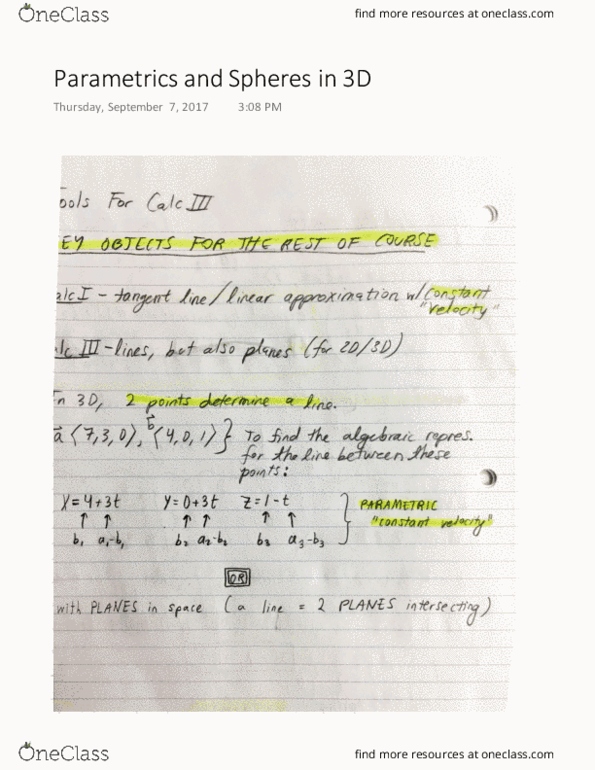 OneClass
find more resources at oneclass.com
Parametrics and Spheres in 3D
Thursday, September 7, 2017 3:08 PM
ools For Calc III
EY OBJECTS FOR THE REST OF COURSE
alc I - tangent line/linear approximation w/ constant
"velocity"
lc III - lines, but also planes (for 2D/3D)
n 3D, 2 points determine a line.
a⃗ ⟨7,3,0⟩, b⃗ ⟨4,0,1⟩ } To find the algebraic repres.
for the line between these
points:
X=4+3t Y=0+3t Z=1-t } PARAMETRIC
↑ ↑ ↑ ↑ ↑ ↑ "constant velocity"
b₁ a₁-b₁ b₂ a₂-b₂ b₃ a₃-b₃
OR
with PLANES in space (a line = 2 PLANES intersecting)
OneClass
find more resources at oneclass.com